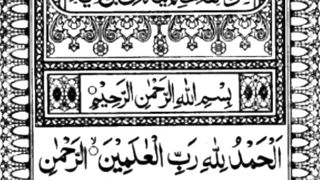 بِسْمِ اللهِ الرَّحْمٰنِ الرَّحِيْمِ
اَلْحَمْدُ لِلّٰهِ رَبِّ الْعٰلَمِيْنَ ۙ الرَّحْمٰنِ